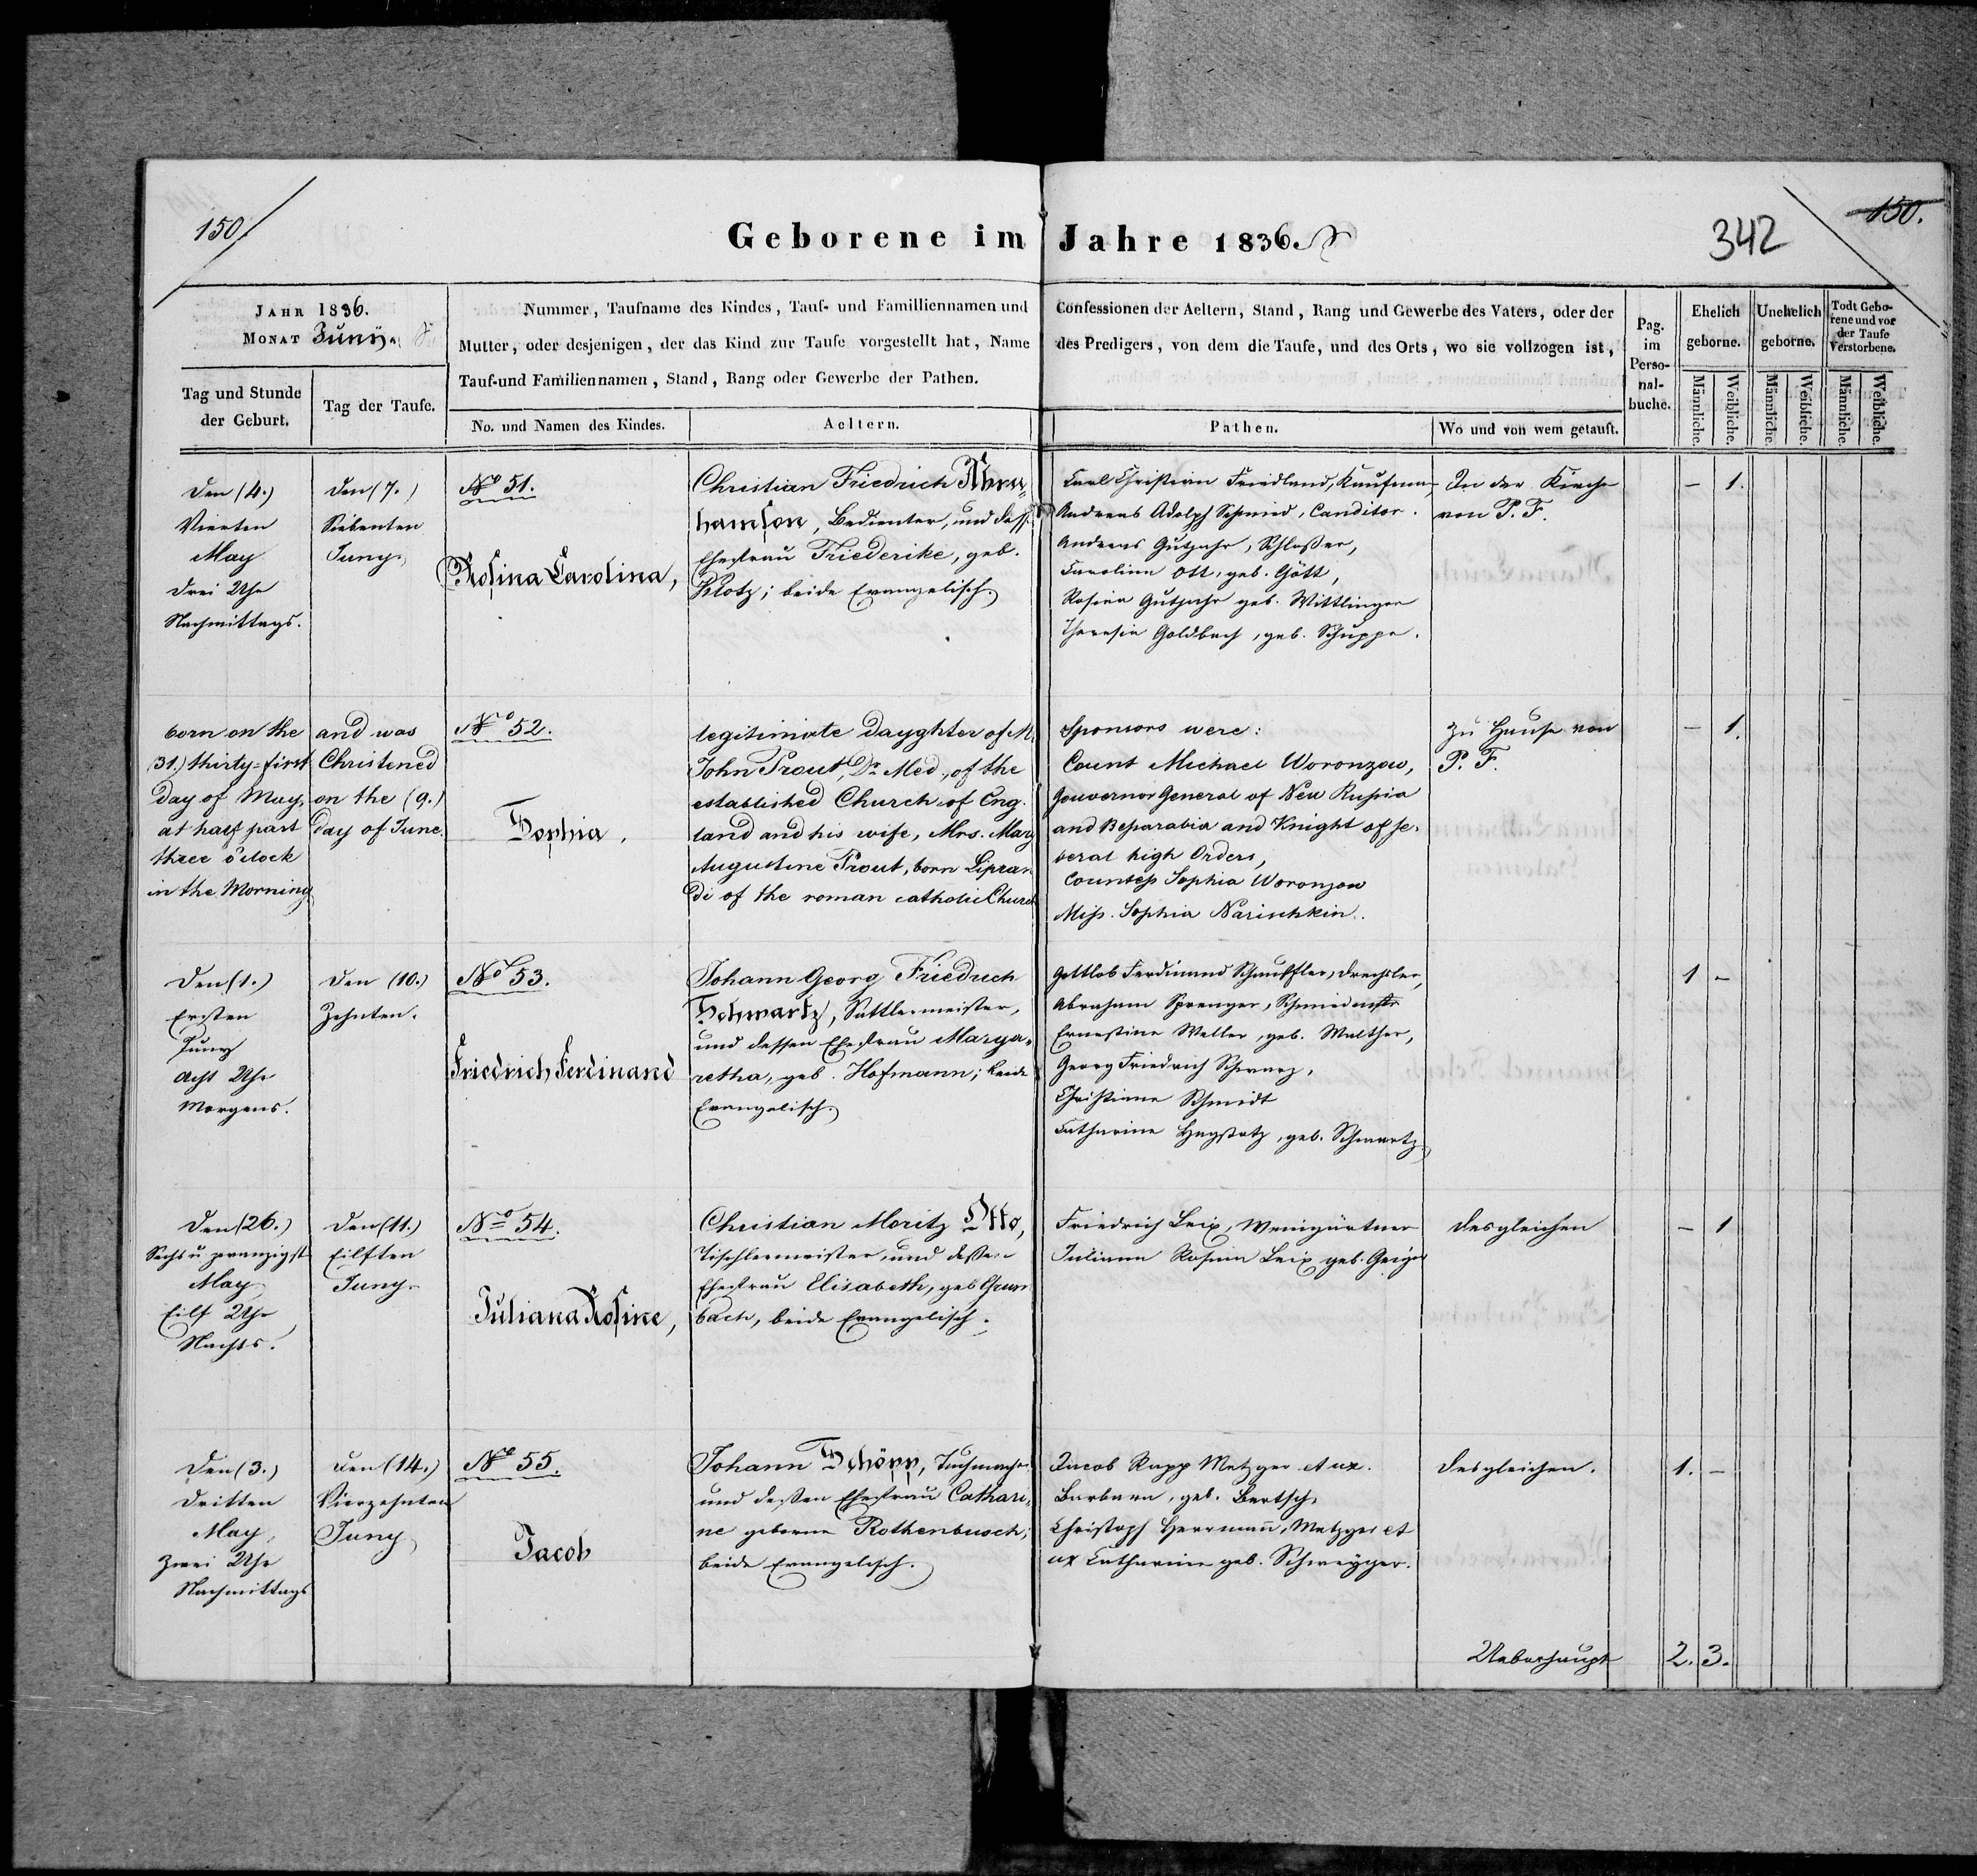 150
Geborene im Jahre 1836.
342
150.
JAHR 1836.
MONAT Juny.
Nummer, Taufname des Kindes, Tauf- und Familliennamen und
Mutter, oder desjenigen, der das Kind zur Taufe vorgestellt hat, Name
Tauf-und Familiennamen, Stand, Rang oder Gewerbe der Pathen.
Confessionen der Aeltern, Stand, Rang und Gewerbe des Vaters, oder der
des Predigers, von dem die Taufe, und des Orts, wo sie vollzogen ist,
Pag.
im
Perso-
nal-
buche.
Ehelich
geborne.
Unehelich
geborne.
Todt Gebo-
rene und vor
der Taufe
Verstorbene.
Tag und Stunde
der Geburt.
Tag der Taufe.
No. und Namen des Kindes.
Aeltern.
Pathen.
Wo und von wem getauft.
Männliche.
Weibliche.
Männliche.
Weibliche.
Männliche.
Weibliche.
Den (4.)
Vierten
May
drei Uhr
Nachmittags.
Den (7.)
Siebenten
Juny.
No 51.
Rosina Carolina,
Christian Friedrich
hamson, Bedienter, und dess.
Ehefrau Friederike, geb.
Klotz; beide Evangelisch.
Carl Christian Friedland, Kaufmann
Andreas Adolph Schmied, Canditor.
Andreas Gutjahr, Schloßer,
Carolina Ott, geb. Gött,
Rosina Gutjahr geb. Wittlinger
Theresia Goldbach, geb. Schuppe.
In der Kirche
von P. F.
- 1.
born on the
(31.) thirty=first
day of May,
at half past
three o'clock
in the Morning
and was
Christened
on the (9.)
day of June.
No 52.
Sophia.
legitimate dayghter of M.
John Prout, Dr. Med., of the
established Church of Eng.
land and his wife, Mrs. Mary
Augustine Prout, born Lipran
di of the roman catholic Church
Sponsors were:
Count Michael Woronzow,
Gouvernor General of New Russia
and Bessarabia and Knight of se.
veral high Orders,
Countess Sophia Woronzow
Miss. Sophia Narischkin.
Zu Hause von
P. F.
- 1.
Den (1.)
Ersten
Juny
Acht Uhr
Morgens.
Den (10.)
Zehnten.
No 53.
Friedrich Ferdinand
Johann Georg Friedrich
Schwartz, Sattlermeister,
und dessen Ehefrau Marga-
retha, geb. Hofmann; beide
Evangelisch.
Gottlob Ferdinand Schauffler, Drechsler,
Abraham Sprenger, Schmiedmstr
Ernestine Weller, geb. Walther,
Georg Friedrich Schwarz,
Christiane Schmidt
Catharina Hagstotz, geb. Schwartz.
1 -
Den (26.)
Sechs u. zwanzigst
May
Eilf Uhr
Nachts.
Den (11.)
Eilften
Juny.
No 54.
Juliana Rosine,
Christian Moritz Otto,
Tischlermeister, und dessen
Ehefrau Elisabeth, geb. Grum
bach, beide Evangelisch.
Friedrich Leix, Weingärtner
Juliana Rosina Leix geb. Geiger
desgleichen
- 1
Den (3.)
dritten
May,
Zwei Uhr
Nachmittags
Den (14.)
Vierzehnten
Juny
No 55.
Jacob
Johann Schöpp, Tuchmacher,
und dessen Ehefrau Cathari-
ne geborne Rothenbusch;
beide Evangelisch.
Jacob Rapp Metzger et ux.
Barbara, geb. Bertsch,
Christoph Herrmann, Metzger et
ux Catharina geb. Schweyger.
desgleichen.
1. -
Ueberhaupt
2. 3.